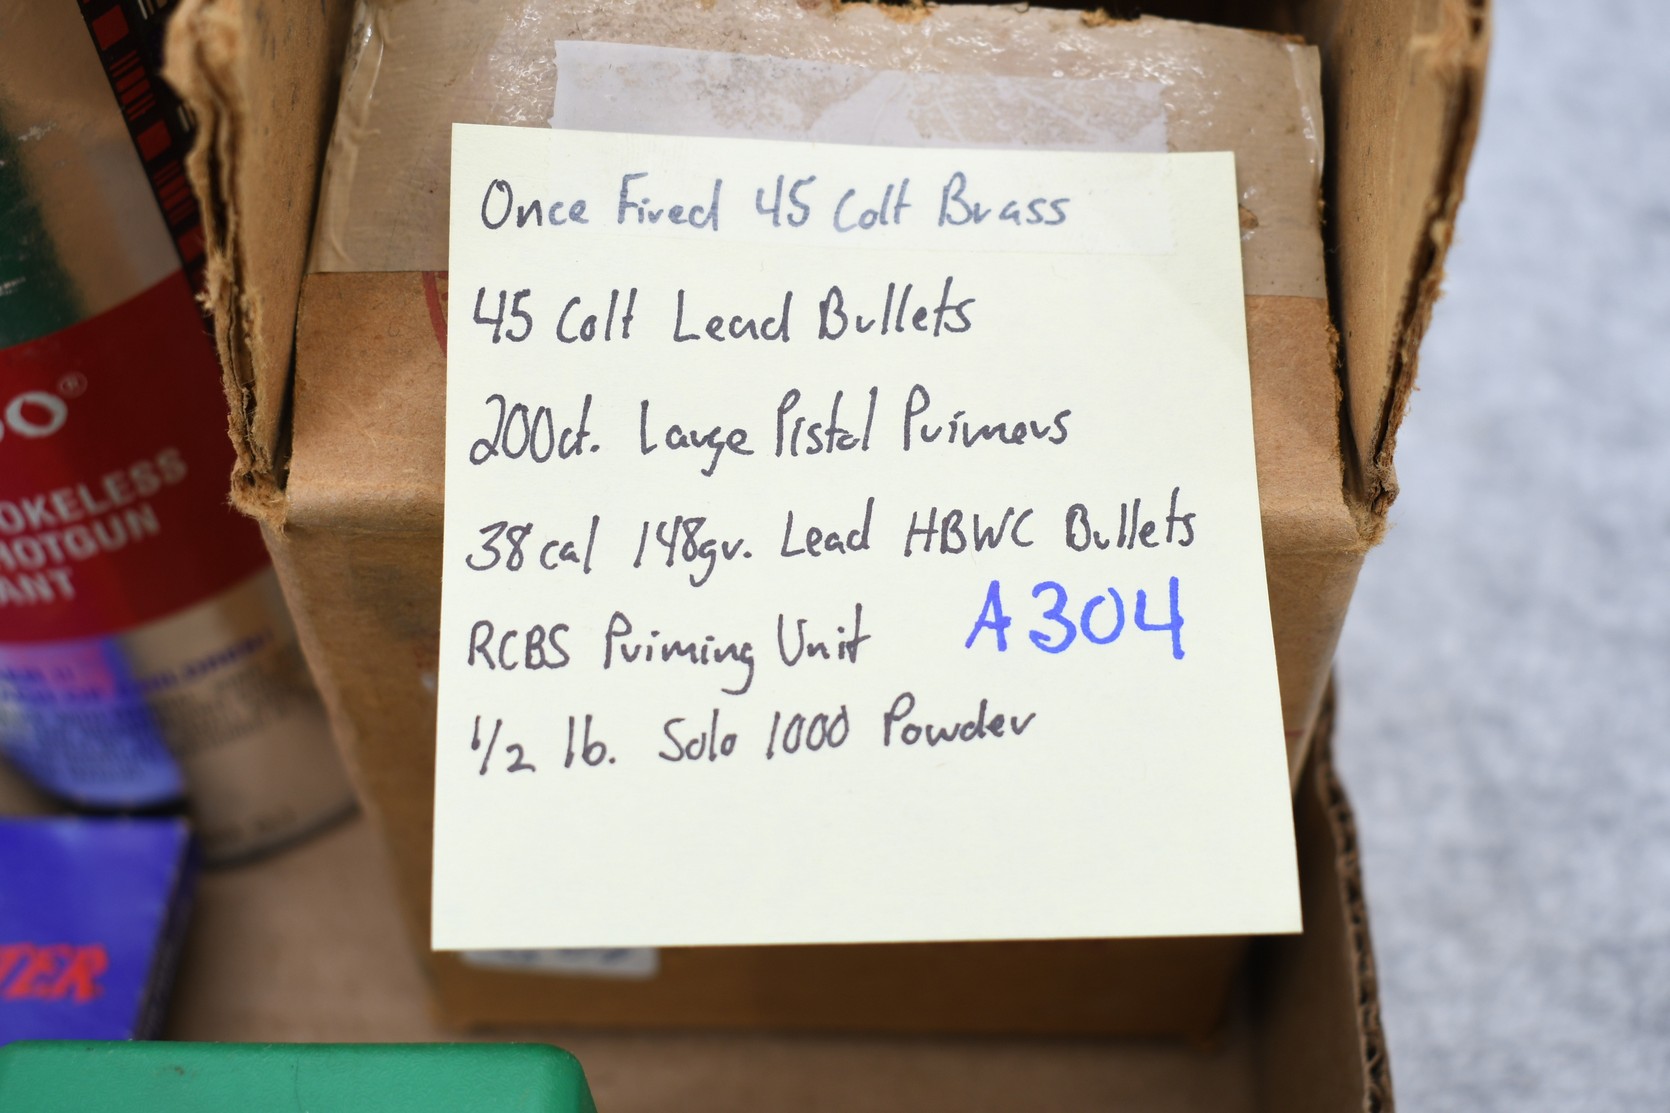 Once Fired 45 Colt Brass
45 Colt Lead Bullets
200ct. Large Pistol Primers
38 cal 148gr. Lead HBWC Bullets
A304
RCBS Priming Unit
1/2 lb. Solo 1000 Powder
OKELESS
HOTGUN
ANT
TER